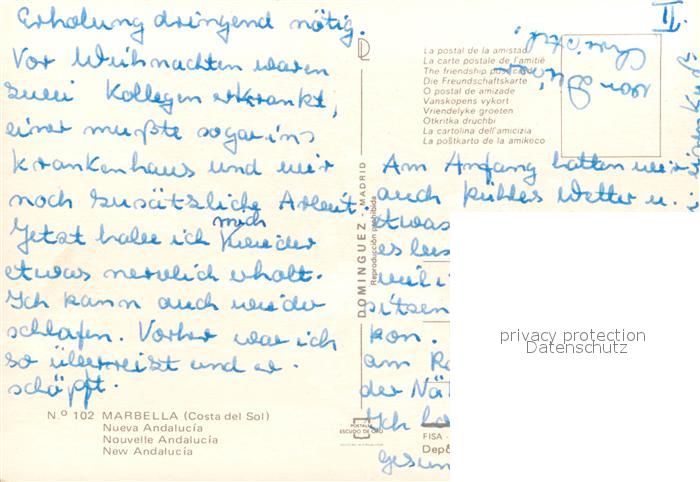 Erholung dringend nötig.
Vor Weihnachten waren
zwei Kollegen erkrankt,
einer mußte sogar ins
Krankenhaus und wir
noch zusätzliche Arbeit.
Jetzt habe ich mich wieder
etwas nervlich erholt.
Ich kann auch wieder
schlafen. Vorher war ich
so überreizt und er-
schöpft.
N.º 102 MARBELLA (Costa del Sol)
Nueva Andalucía
Nouvelle Andalucía
New Andalucía
DOMINGUEZ - MADRID
Reproducción prohibida
POSTALES
ESCUDO DE ORO
II.
La postal de la amistad
La carte postale de l'amitié
The friendship postcard
Die Freundschaftskarte
O postal de amizade
Vanskopens vykort
Vriendelyke groeten
Otkritka druchbi
La cartolina dell'amicizia
La poŝtkarto de la amikeco
von
Am Anfang hatten wir
auch kühles Wetter u.
etwas
es
weil i
sitzen
kon.
am
der Nä
Ich
gesun
FISA -
Dep
privacy protection
Datenschutz